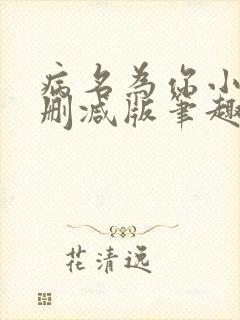 病名为你小
删减版笔趣
花清远